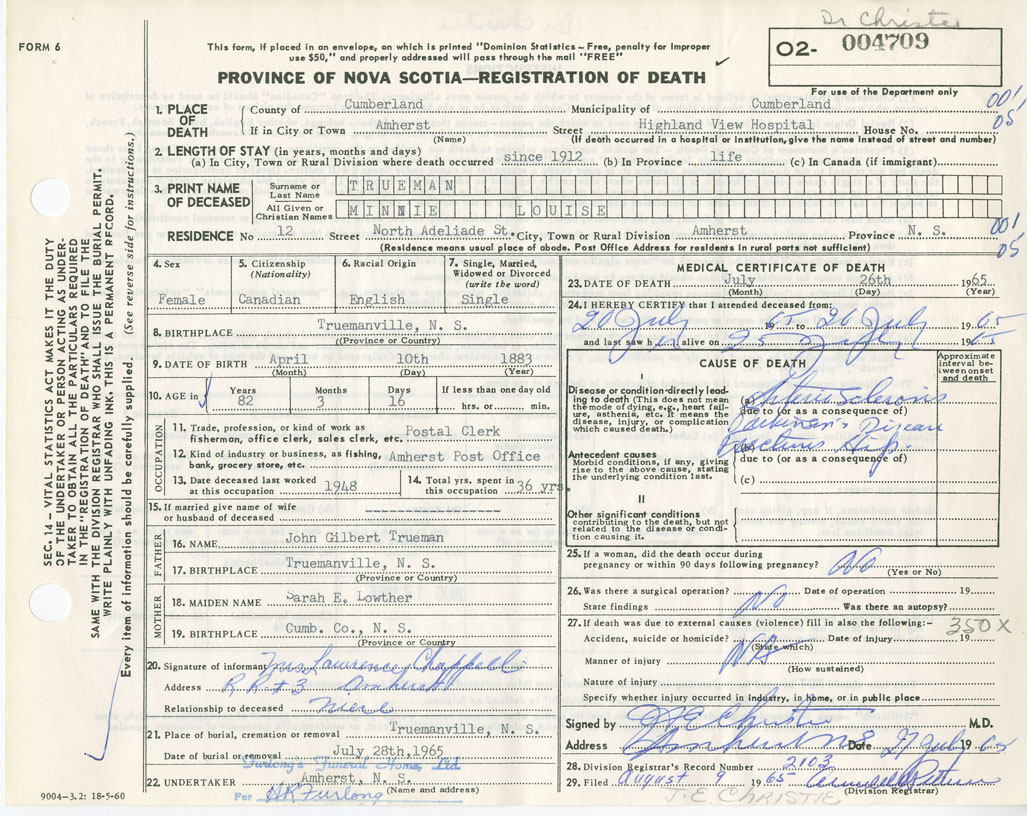 Dr Christie
FORM 6
This form, if placed in an envelope, on which is printed "Dominion Statistics – Free, penalty for improper
use $50," and properly addressed will pass through the mail "FREE"
O2- 004709
PROVINCE OF NOVA SCOTIA—REGISTRATION OF DEATH
For use of the Department only
1. PLACE OF DEATH
County of Cumberland Municipality of Cumberland
001
05
If in City or Town Amherst Street Highland View Hospital House No.
(Name) (If death occurred in a hospital or institution, give the name instead of street and number)
2. LENGTH OF STAY (in years, months and days)
(a) In City, Town or Rural Division where death occurred since 1912 (b) In Province life (c) In Canada (if immigrant)
3. PRINT NAME OF DECEASED
Surname or Last Name TRUEMAN
All Given or Christian Names MINNIE LOUISE
RESIDENCE No 12 Street North Adeliade St. City, Town or Rural Division Amherst Province N. S.
001
05
(Residence means usual place of abode. Post Office Address for residents in rural parts not sufficient)
4. Sex
Female
5. Citizenship
(Nationality)
Canadian
6. Racial Origin
English
7. Single, Married, Widowed or Divorced
(write the word)
Single
8. BIRTHPLACE Truemanville, N. S.
((Province or Country)
9. DATE OF BIRTH April 10th 1883
(Month) (Day) (Year)
10. AGE in
Years 82
Months 3
Days 16
If less than one day old
hrs. or min.
OCCUPATION
11. Trade, profession, or kind of work as
fisherman, office clerk, sales clerk, etc. Postal Clerk
12. Kind of industry or business, as fishing,
bank, grocery store, etc. Amherst Post Office
13. Date deceased last worked
at this occupation 1948
14. Total yrs. spent in
this occupation 36 yrs.
15. If married give name of wife
or husband of deceased
FATHER
16. NAME John Gilbert Trueman
17. BIRTHPLACE Truemanville, N. S.
(Province or Country)
MOTHER
18. MAIDEN NAME Sarah E. Lowther
19. BIRTHPLACE Cumb. Co., N. S.
(Province or Country)
20. Signature of informant Mrs Lawrence Chappell
Address RR#3 Amherst
Relationship to deceased niece
21. Place of burial, cremation or removal Truemanville, N. S.
Date of burial or removal July 28th, 1965
Furlong's Funeral Home, Ltd.
22. UNDERTAKER Amherst, N. S.
(Name and address)
Per HR Furlong
9004-3.2: 18-5-60
MEDICAL CERTIFICATE OF DEATH
23. DATE OF DEATH July 26th 1965
(Month) (Day) (Year)
24. I HEREBY CERTIFY that I attended deceased from:
20 July 1965 to 26 July 1965
and last saw her alive on 25 July 1965
CAUSE OF DEATH
Approximate interval between onset and death
I
Disease or condition directly leading to death (This does not mean the mode of dying, e.g., heart failure, asthenia, etc. It means the disease, injury, or complication which caused death)
(a) Arterio Sclerosis
due to (or as a consequence of)
Parkinson's Disease
Antecedent causes
Morbid conditions, if any, giving rise to the above cause, stating the underlying condition last.
(b) Fractures Hip
due to (or as a consequence of)
(c)
II
Other significant conditions
contributing to the death, but not related to the disease or condition causing it.
25. If a woman, did the death occur during
pregnancy or within 90 days following pregnancy? No
(Yes or No)
26. Was there a surgical operation? No Date of operation 19
State findings Was there an autopsy?
27. If death was due to external causes (violence) fill in also the following:–
350X
Accident, suicide or homicide? Date of injury 19
(State which)
Manner of injury
(How sustained)
Nature of injury
Specify whether injury occurred in industry, in home, or in public place
Signed by J E Christie M.D.
Address Amherst NS Date 27 July 1965
28. Division Registrar's Record Number 2103
29. Filed August 9 1965
(Division Registrar)
J. E. CHRISTIE
SEC. 14 – VITAL STATISTICS ACT MAKES IT THE DUTY
OF THE UNDERTAKER OR PERSON ACTING AS UNDER-
TAKER TO OBTAIN ALL THE PARTICULARS REQUIRED
IN THE "REGISTRATION OF DEATH" AND TO FILE THE
SAME WITH THE DIVISION REGISTRAR WHO SHALL ISSUE THE BURIAL PERMIT.
WRITE PLAINLY WITH UNFADING INK. THIS IS A PERMANENT RECORD.
Every item of information should be carefully supplied. (See reverse side for instructions.)